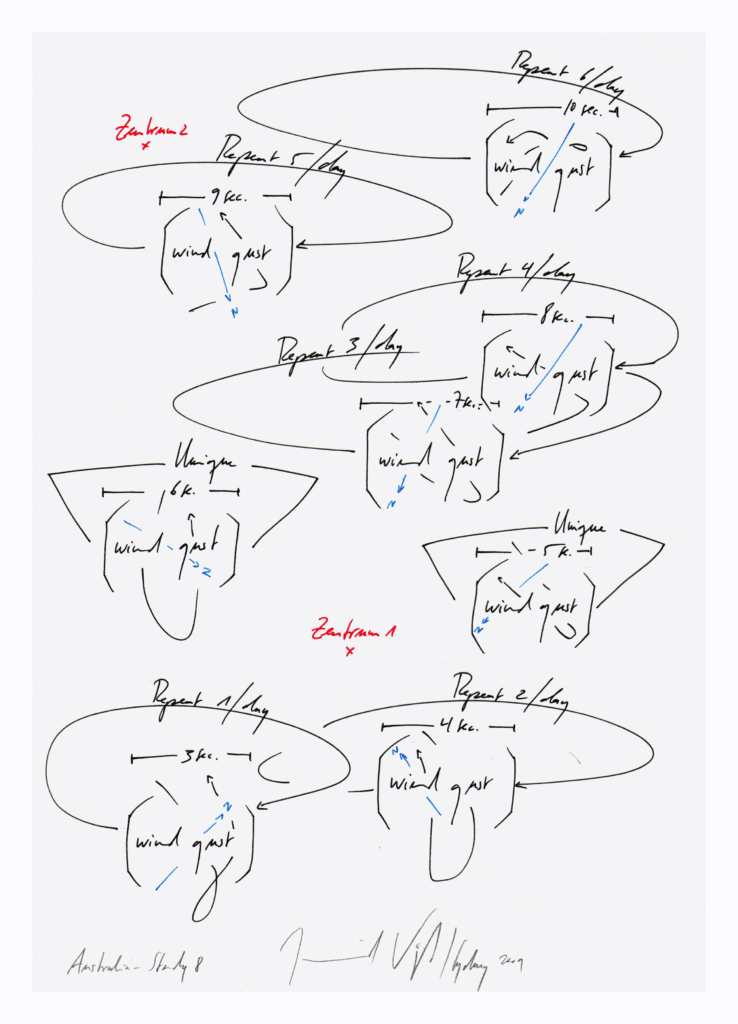 Repeat 6/day
10 sec.
wind gust
N
Zentrum 2
Repeat 5/day
9 sec.
wind gust
N
Repeat 4/day
8 sec.
wind gust
N
Repeat 3/day
7 sec.
wind gust
N
Unique
6 sec.
wind gust
N
Unique
5 sec.
wind gust
N
Zentrum 1
Repeat 1/day
3 sec.
wind gust
N
Repeat 2/day
4 sec.
wind gust
N
Australia-Study 8
/Sydney 2009